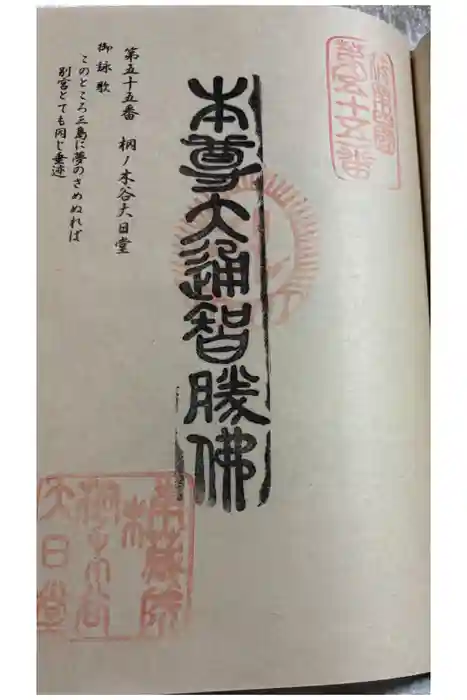 第五十五番
本尊大通智勝佛
第五十五番 桐ノ木谷大日堂
御詠歌
このところ三島に夢のさめぬれば
別宮とても同じ垂迹
大日堂